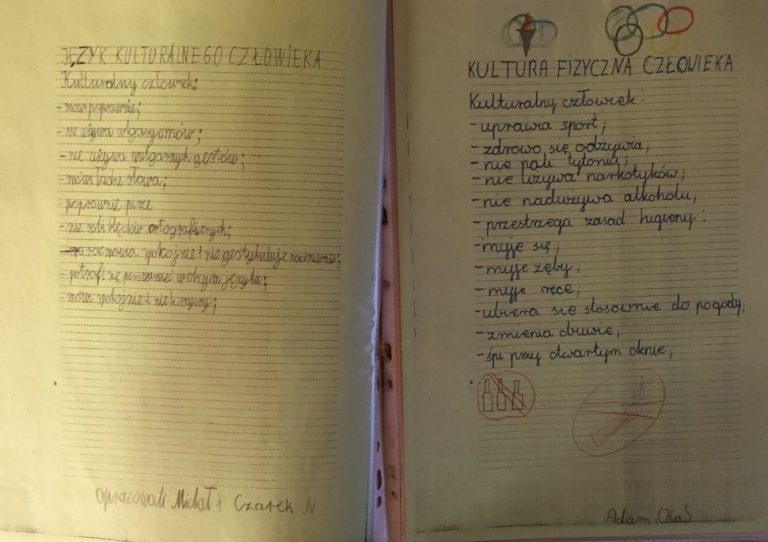 JĘZYK KULTURALNEGO CZŁOWIEKA
Kulturalny człowiek:
- mówi poprawnie;
- nie używa wulgaryzmów;
- nie używa wulgarnych gestów;
- mówi ładne słowa;
poprawnie pisze
- nie robi błędów ortograficznych;
- rozmawia spokojnie i nie gestykuluje nadmiernie;
- potrafi się porozumieć w obcym języku;
- mówi spokojnie i nie krzyczy;
opracowali Michał i Czarek N
KULTURA FIZYCZNA CZŁOWIEKA
Kulturalny człowiek:
- uprawia sport;
- zdrowo się odżywia;
- nie pali tytoniu;
- nie używa narkotyków;
- nie nadużywa alkoholu;
- przestrzega zasad higieny:
- myje się;
- myje zęby;
- myje ręce;
- ubiera się stosownie do pogody;
- zmienia obuwie;
- śpi przy otwartym oknie;
Adam